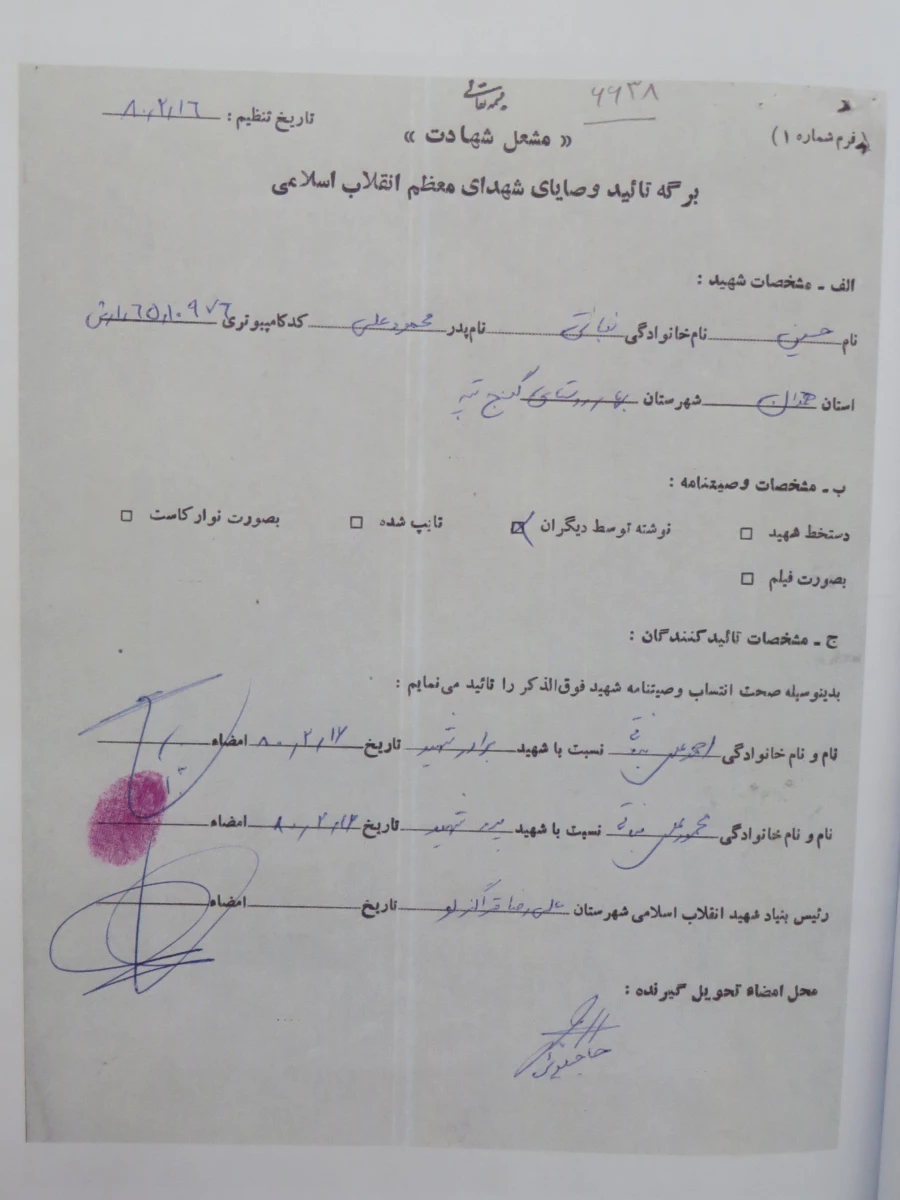 بسمه تعالی
۶۶۳۸
(فرم شماره ۱)
« مشعل شهادت »
تاریخ تنظیم : ۸۰٫۲٫۱۶
برگه تائید وصایای شهدای معظم انقلاب اسلامی
الف ـ مشخصات شهید :
نام حسین نام‌خانوادگی نباتی نام‌پدر محمودعلی کدکامپیوتری
استان همدان شهرستان بهار روستای گنج تپه
ب ـ مشخصات وصیتنامه :
دستخط شهید □ نوشته توسط دیگران ☒ تایپ شده □ بصورت نوار کاست □
بصورت فیلم □
ج ـ مشخصات تائیدکنندگان :
بدینوسیله صحت انتساب وصیتنامه شهید فوق‌الذکر را تائید می‌نمایم :
نام و نام خانوادگی نسبت با شهید برادر شهید تاریخ ۸۰٫۲٫۱۶ امضاء
نام و نام خانوادگی محمودعلی نباتی نسبت با شهید پدر شهید تاریخ ۸۰٫۲٫۱۶ امضاء
رئیس بنیاد شهید انقلاب اسلامی شهرستان قراگزلو تاریخ امضاء
محل امضاء تحویل گیرنده :